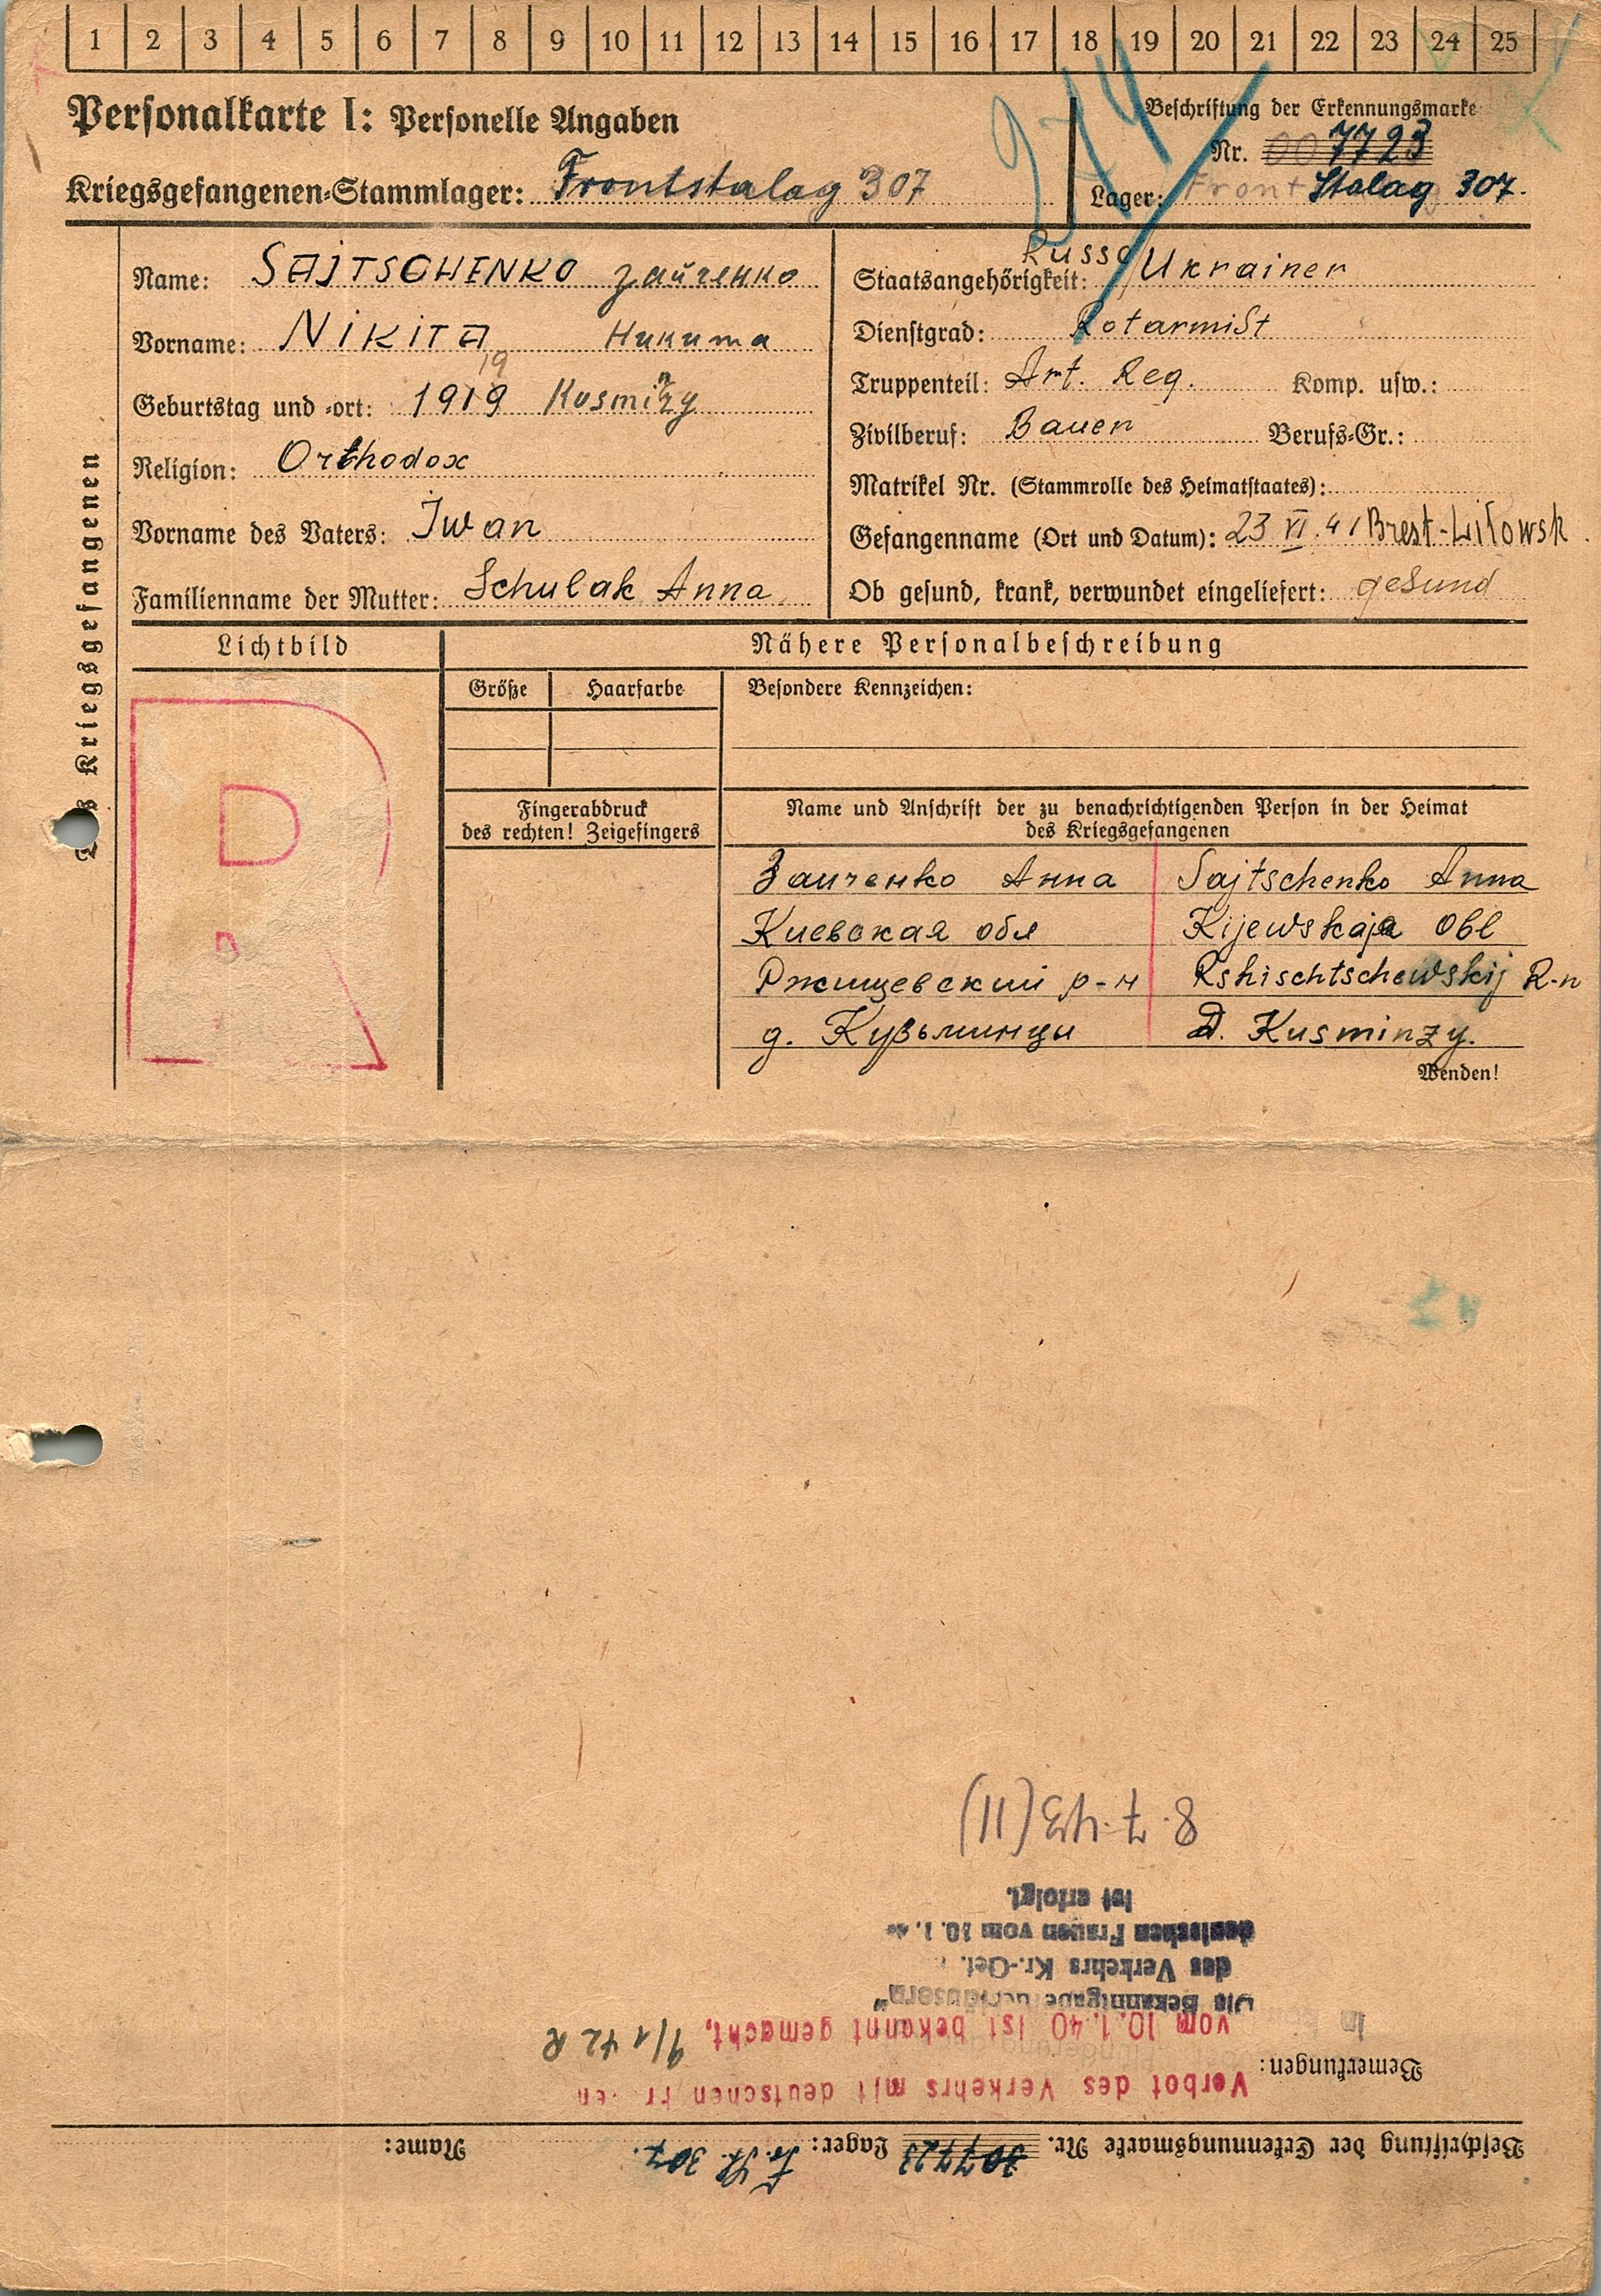 1 2 3 4 5 6 7 8 9 10 11 12 13 14 15 16 17 18 19 20 21 22 23 24 25
Personalkarte I: Personelle Angaben
Beschriftung der Erkennungsmarke
Nr. 007723
Kriegsgefangenen-Stammlager: Frontstalag 307
Lager: Front Stalag 307.
Des Kriegsgefangenen
Name: SAJTSCHENKO Зайченко
Vorname: NIKITA Никита
19
Geburtstag und -ort: 1919 Kusminzy
Religion: Orthodox
Vorname des Vaters: Iwan
Familienname der Mutter: Schulak Anna
Russo
Staatsangehörigkeit: Ukrainer
Dienstgrad: Rotarmist
Truppenteil: Art. Reg. Komp. usw.:
Zivilberuf: Bauer Berufs-Gr.:
Matrikel Nr. (Stammrolle des Heimatstaates):
Gefangenname (Ort und Datum): 23 VI. 41 Brest-Litowsk.
Ob gesund, krank, verwundet eingeliefert: gesund
Lichtbild
Nähere Personalbeschreibung
Größe Haarfarbe Besondere Kennzeichen:
Fingerabdruck
des rechten! Zeigefingers
Name und Anschrift der zu benachrichtigenden Person in der Heimat
des Kriegsgefangenen
R
Заиченко Анна Sajtschenko Anna
Киевская обл Kijewskaja Obl
Ржищевский р-н Rshischtschewskij R-n
д. Кузьминци D. Kusminzy.
Wenden!
Beschriftung der Erkennungsmarke Nr. 307723 Lager: Fr. St. 307. Name:
Bemerkungen: Verbot des Verkehrs mit deutschen Fr en
vom 10.1.40 ist bekannt gemacht, 9/1 42 R
Die Bekanntgabe
des Verkehrs Kr.-Gef.
deutschen Frauen vom 10. 1.
ist erfolgt.
8.7.43(11)